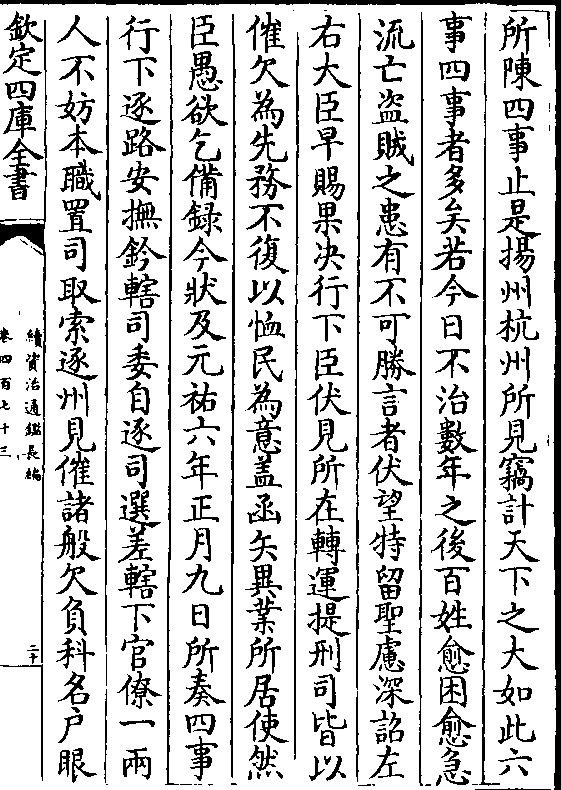 所陳四事止是揚州杭州所見竊計天下之大如此六
事四事者多矣若今日不治數年之後百姓愈困愈急
流亡盜賊之患有不可勝言者伏望特留聖慮深詔左
右大臣早賜果決行下臣伏見所在轉運提刑司皆以
催欠為先務不復以恤民為意盖函矢異業所居使然
臣愚欲乞備録今狀及元祐六年正月九日所奏四事
行下逐路安撫鈐轄司委自逐司選差轄下官僚一兩
人不妨本職置司取索逐州見催諸般欠負科名户眼
欽定四庫全書
續資治通鑑長編
卷四百七十三
二十